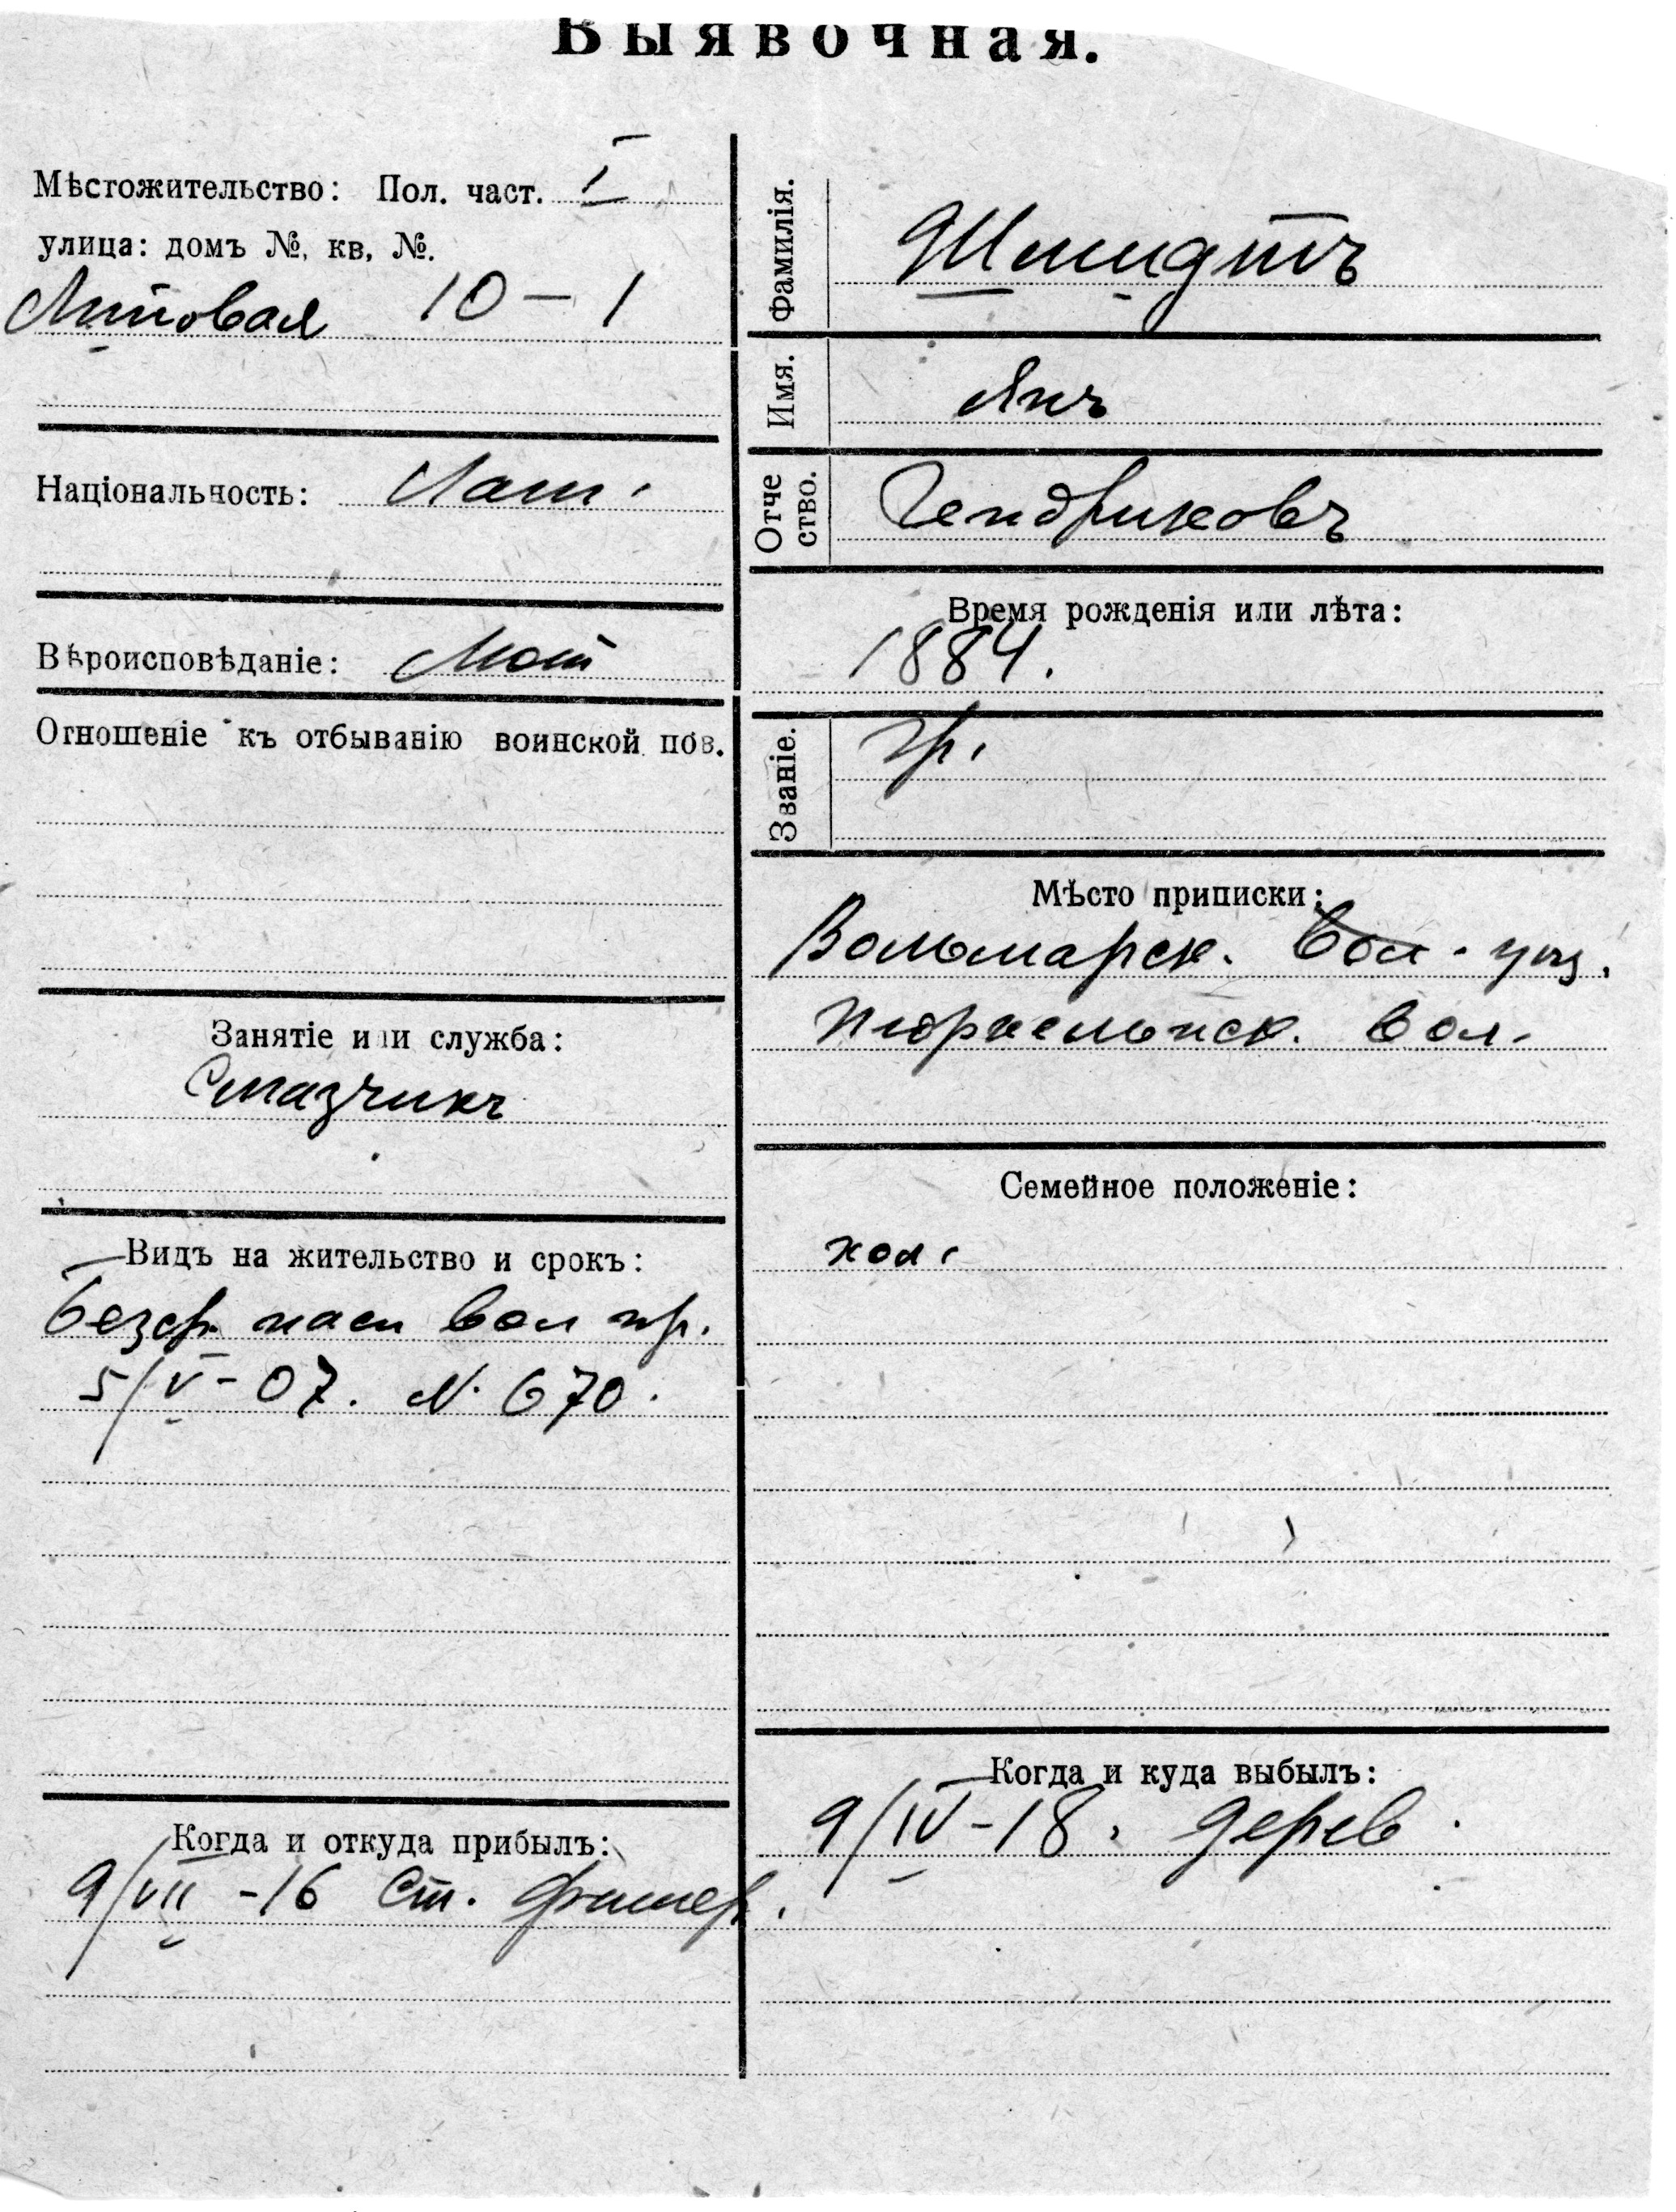 Выявочная.
Мѣстожительство: Пол. част. I
улица: домъ №, кв, №.
Липовая 10 – 1
Національность: Лат.
Вѣроисповѣданіе: Лют
Отношеніе къ отбыванію воинской пов.
Занятіе или служба:
Смазчикъ
Видъ на жительство и срокъ:
Безср. пасп вол пр.
5/V – 07. N. 670.
Когда и откуда прибылъ:
9/VII – 16 Ст.
Фамилія. Шмидтъ
Имя. Янъ
Отче
ство. Гендриховъ
Время рожденія или лѣта:
1884.
Званіе. гр.
Мѣсто приписки:
Вольмарск. вол. уѣз.
Пюркельнск. вол.
Семейное положеніе:
хол.
Когда и куда выбылъ:
9/IV – 18. дерев.